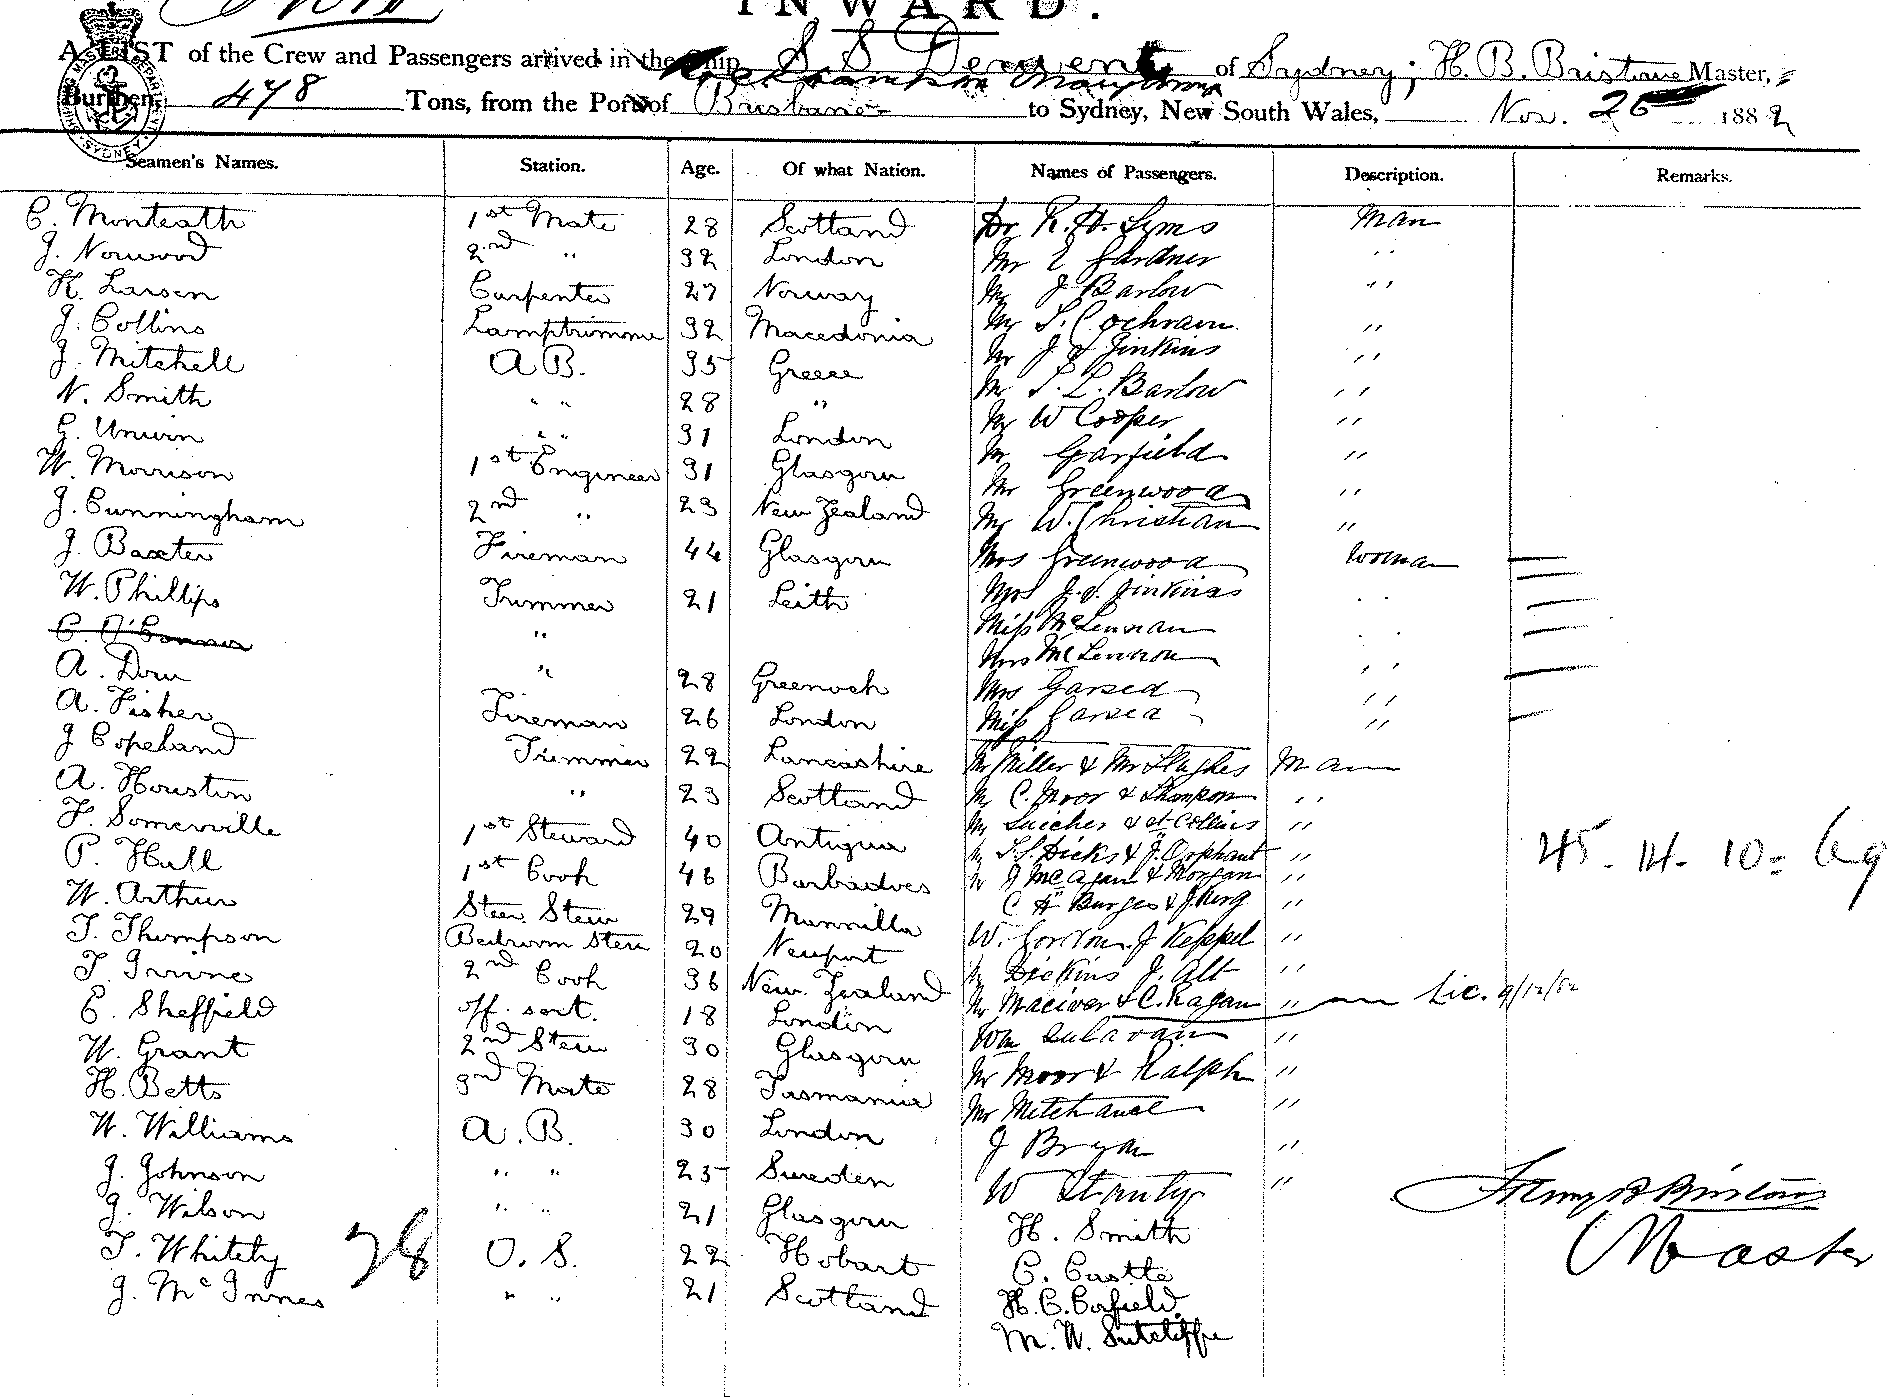 INWARD.
A LIST of the Crew and Passengers arrived in the Ship S S Derwent of Sydney, H. B. Bristow Master,
Burthen, 478 Tons, from the Port of Brisbane to Sydney, New South Wales, Nov. 26 1882
Seamen's Names. Station. Age. Of what Nation. Names of Passengers. Description. Remarks.
C. Monteath 1st Mate 28 Scotland Dr R. H. Syms Man
J. Norwood 2nd " 32 London Mr E Gardner "
H. Larsen Carpenter 27 Norway Mr J Barlow "
J. Collins Lamptrimmer 32 Macedonia Mr S. Cochram "
J. Mitchell A B. 35 Greece Mr J S Jinkins "
N. Smith " " 28 " Mr S. L. Barlow "
G. Unwin " " 31 London Mr W Cooper "
W. Morrison 1st Engineer 31 Glasgow Mr Garfield "
J. Cunningham 2nd " 23 New Zealand Mr Greenwood "
Mr W. Christian "
J. Baxter Fireman 44 Glasgow Mrs Greenwood Woman
W. Phillips Trimmer 21 Leith Mrs J. S. Jinkins "
C. O'Connor " Miss McLennan "
A. Dow " 28 Greenock Mrs McLennon "
Mrs Garsed "
A. Fisher Fireman 26 London Miss Garsed "
J Copeland Trimmer 22 Lancashire Mr Miller & Mr Hughes Man
A. Houston " 23 Scotland Mr C. Moor & Thompson "
F. Somerville 1st Steward 40 Antigua Mr & H Collins "
P. Hull 1st Cook 46 Barbadoes Mr S. S. Dicks & J. Oliphant "
W. Arthur Steer. Stew 29 Mannilla Mr J McAgan & Morgan "
C H Burges & J King "
T. Thompson Bedroom Stew 20 Newport W. Gordon. J Keppel "
T. Irvine 2nd Cook 36 New Zealand Mr Dickins J. Alt "
C. Sheffield off. servt. 18 London Mr Maciver & C. Ragan " Lic. 9/12/82
W. Grant 2nd Stew 30 Glasgow Wm "
H. Betts 3rd Mate 28 Tasmania Mr Moor & Ralph "
W. Williams A. B. 30 London Mr "
J Bryan "
J. Johnson " " 25 Sweden W "
J. Wilson " " 21 Glasgow H. Smith
T. Whitely O. S. 22 Hobart C. Castle
J. McInnes " " 21 Scotland H. C. Corfield
M. W. Sutcliffe
28
45. 14. 10 = 69
Henry B Bristow
Master